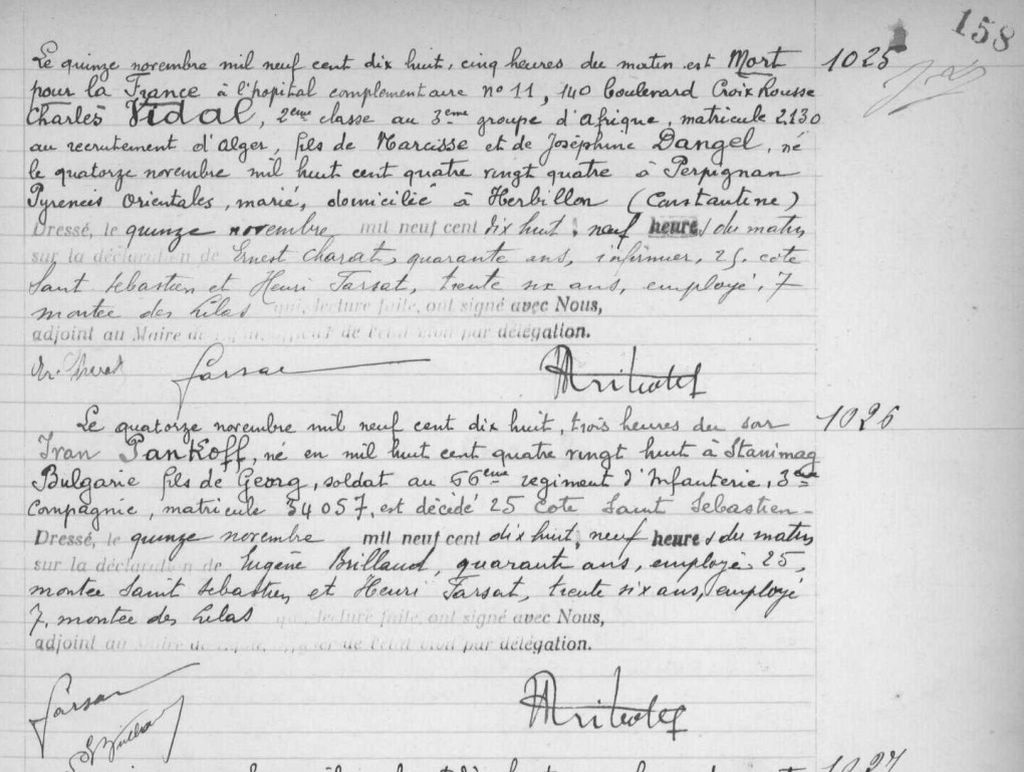 158
Le quinze novembre mil neuf cent dix huit, cinq heures du matin est Mort 1025
pour la France à l'hopital complementaire n° 11, 140 boulevard Croix Rousse
Charles Vidal, 2eme classe au 3eme groupe d'Afrique, matricule 2130
au recrutement d'Alger, fils de Narcisse et de Joséphine Dangel, né
le quatorze novembre mil huit cent quatre vingt quatre à Perpignan
Pyrenées Orientales, marié, domicilié à Herbillon (Constantine)
Dressé, le quinze novembre mil neuf cent dix huit, neuf heures du matin
sur la déclaration de Ernest Charat, quarante ans, infirmier, 25. cote
Saint Sébastien et Henri Tarsat, trente six ans, employé, 7
montée des Lilas qui, lecture faite, ont signé avec Nous,
adjoint au Maire de Lyon, officier de l'état civil par délégation.
Le quatorze novembre mil neuf cent dix huit, trois heures du soir 1026
Ivan Pankoff, né en mil huit cent quatre vingt huit à Stanimag
Bulgarie fils de Georg, soldat au 66eme regiment d'Infanterie, 3eme
Compagnie, matricule 34057, est décédé 25 cote Saint Sebastien-
Dressé, le quinze novembre mil neuf cent dix huit, neuf heures du matin
sur la déclaration de Eugène Brilland, quarante ans, employé 25,
montée Saint Sebastien et Henri Tarsat, trente six ans, employé
7, montée des Lilas qui, lecture faite, ont signé avec Nous,
adjoint au Maire de Lyon, officier de l'état civil par délégation.
1027